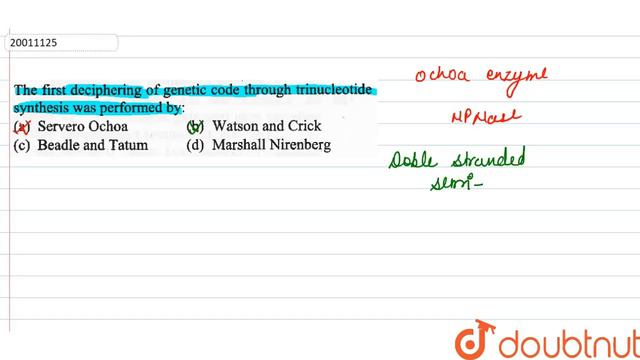 20011125
The first deciphering of genetic code through trinucleotide
synthesis was performed by:
(a) Servero Ochoa (b) Watson and Crick
(c) Beadle and Tatum (d) Marshall Nirenberg
Ochoa enzyme
NPNase
Doble stranded
semi-
doubtnut